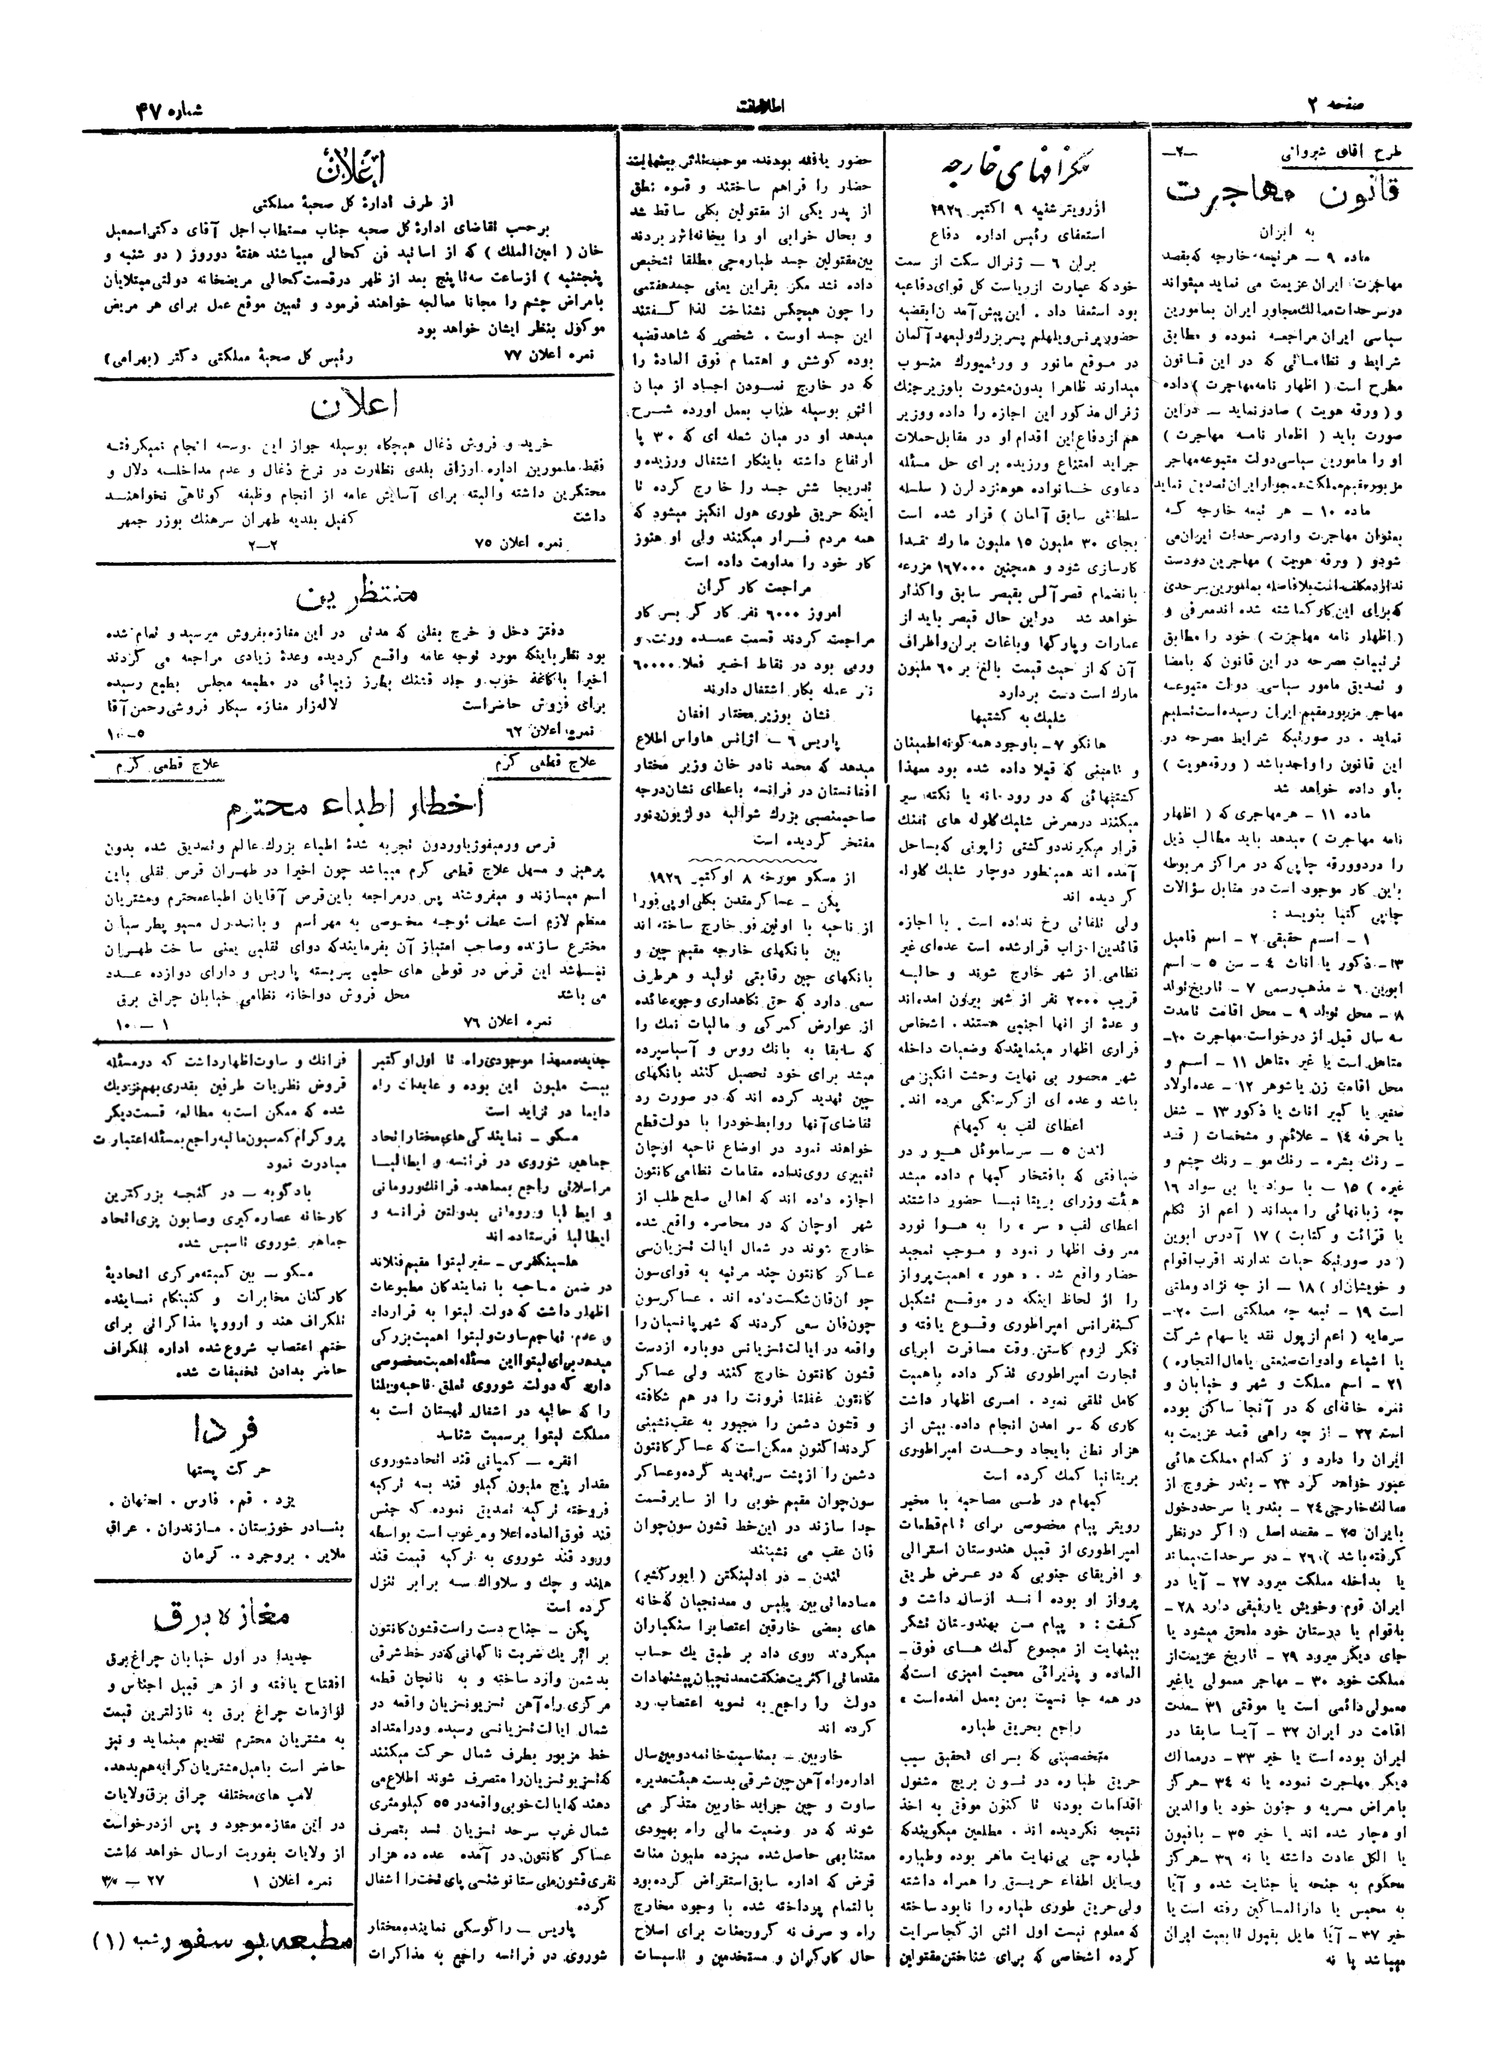 صفحه ۲
اطلاعات
شماره ۴۷
طرح آقای شیروانی —۲—
قانون مهاجرت
به ایران
ماده ۹ — هر تبعه خارجه که بقصد
مهاجرت ایران عزیمت می نماید میتواند
در سرحدات ممالک مجاور ایران بمامورین
سیاسی ایران مراجعه نموده و مطابق
شرایط و نظاماتی که در این قانون
مطرح است ( اظهار نامه مهاجرت ) داده
و ( ورقه هویت ) صادر نماید — در این
صورت باید ( اظهار نامه مهاجرت )
او را مامورین سیاسی دولت متبوعه مهاجر
مزبور مقیم مملکت همجوار ایران تصدیق نماید
ماده ۱۰ — هر تبعه خارجه که
بعنوان مهاجرت وارد سرحدات ایران می
شود و ( ورقه هویت ) مهاجرین در دست
ندارد مکلف است بلافاصله بمامورین سرحدی
که برای این کار گماشته شده اند معرفی و
( اظهار نامه مهاجرت ) خود را مطابق
ترتیبات مصرحه در این قانون که بامضا
و تصدیق مامور سیاسی دولت متبوعه
مهاجر مزبور مقیم ایران رسیده است تسلیم
نماید . در صورتیکه شرایط مصرحه در
این قانون را واجد باشد ( ورقه هویت )
باو داده خواهد شد
ماده ۱۱ — هر مهاجری که ( اظهار
نامه مهاجرت ) میدهد باید مطالب ذیل
را در دو ورقه چاپی که در مراکز مربوطه
باین کار موجود است در مقابل سؤالات
چاپی کتبا بنویسد :
۱ — اسم حقیقی ۲ — اسم فامیل
۳ — ذکور یا اناث ۴ — سن ۵ — اسم
ابوین ۶ — مذهب رسمی ۷ — تاریخ تولد
۸ — محل تولد ۹ — محل اقامت تامدت
سه سال قبل از درخواست مهاجرت ۱۰ —
متاهل است یا غیر متاهل ۱۱ — اسم و
محل اقامت زن یا شوهر ۱۲ — عده اولاد
صغیر یا کبیر اناث یا ذکور ۱۳ — شغل
یا حرفه ۱۴ — علائم و مشخصات ( قد
— رنگ بشره — رنگ مو — رنگ چشم و
غیره ) ۱۵ — با سواد یا بی سواد ۱۶
چه زبانهائی را میداند ( اعم از تکلم
یا قرائت و کتابت ) ۱۷ آدرس ابوین
( در صورتیکه حیات ندارند اقرب اقوام
و خویشان او ) ۱۸ — از چه نژاد و ملتی
است ۱۹ — تبعه چه مملکتی است ۲۰ —
سرمایه ( اعم از پول نقد یا سهام شرکت
یا اشیاء و ادوات صنعتی یا مال التجاره )
۲۱ — اسم مملکت و شهر و خیابان و
نمره خانه‌ای که در آنجا ساکن بوده
است ۲۲ — از چه راهی قصد عزیمت به
ایران را دارد و از کدام مملکت هائی
عبور خواهد کرد ۲۳ — بندر خروج از
ممالک خارجی ۲۴ — بندر یا سرحد دخول
بایران ۲۵ — مقصد اصلی ( اگر در نظر
گرفته باشد ) ۲۶ — در سرحدات بماند
یا بداخله مملکت میرود ۲۷ — آیا در
ایران قوم و خویش یا رفیقی دارد ۲۸ —
به اقوام یا دوستان خود ملحق میشود یا
جای دیگر میرود ۲۹ — تاریخ عزیمت از
مملکت خود ۳۰ — مهاجر معمولی یا غیر
معمولی دائمی است یا موقتی ۳۱ — مدت
اقامت در ایران ۳۲ — آیا سابقا در
ایران بوده است یا خیر ۳۳ — در ممالک
دیگر مهاجرت نموده یا نه ۳۴ — هرگز
بامراض مسریه و جنون خود یا والدین
او دچار شده اند یا خیر ۳۵ — بافیون
یا الکل عادت داشته یا نه ۳۶ — هرگز
محکوم به جنحه یا جنایت شده و آیا
به محبس یا دارالمساکین رفته است یا
خیر ۳۷ — آیا مایل بقبول تابعیت ایران
میباشد یا نه
تلگرافهای خارجه
از رویتر شنبه ۹ اکتبر ۱۹۲۶
استعفای رئیس اداره دفاع
برلن ۶ — ژنرال سکت از سمت
خود که عبارت از ریاست کل قوای دفاعیه
بود استعفا داد . این پیش آمد را بقضیه
حضور پرنس ویلهلم پسر بزرگ ولیعهد آلمان
در موقع مانور و ورتمبورک منسوب
میدارند ظاهرا بدون مشورت با وزیر جنگ
ژنرال مذکور این اجازه را داده و وزیر
هم از دفاع این اقدام او در مقابل حملات
جراید امتناع ورزیده برای حل مسئله
دعاوی خانواده هوهنزدلرن ( سلسله
سلطنتی سابق آلمان ) قرار شده است
بجای ۳۰ ملیون ۱۵ ملیون مارک نقدا
کارسازی شود و همچنین ۱۶۷۰۰۰ مزرعه
بانضمام قصر آلس بقیصر سابق واگذار
خواهد شد در این حال قیصر باید از
عمارات و پارکها و باغات برلن و اطراف
آن که از حیث قیمت بالغ بر ۶۰ ملیون
مارک است دست بردارد
شلیک به کشتیها
هانکو ۷ — با وجود همه گونه اطمینان
و تامینی که قبلا داده شده بود معهذا
کشتیهائی که در رودخانه یا نکته سیر
میکنند در معرض شلیک گلوله های تفنک
قرار میگیرند دو کشتی ژاپونی که بساحل
آمده اند همینطور دوچار شلیک گلوله
گردیده اند
ولی تلفاتی رخ نداده است . با اجازه
قائدین احزاب قرار شده است عده‌ای غیر
نظامی از شهر خارج شوند و حالیه
قریب ۲۰۰۰ نفر از شهر بیرون امده‌اند
و عدهٔ از آنها اجنبی هستند . اشخاص
فراری اظهار مینمایند که وضعیات داخله
شهر محصور بی نهایت وحشت انگیز می
باشد و عده ای از گرسنگی مرده اند .
اعطای لقب به کبهام
لندن ۵ — سر ساموئل هور در
ضیافتی که بافتخار کبهام داده میشد
هئت وزرای بریتانیا حضور داشتند
اعطای لقب « سر » را به هوا نورد
معروف اظهار نمود و موجب تمجید
حضار واقع شد . « هور » اهمیت پرواز
را از لحاظ اینکه در موقع تشکیل
کنفرانس امپراطوری وقوع یافته و
فکر لزوم کاستن وقت مسافرت ابرای
تجارت امپراطوری تذکر داده با همیت
کامل تلقی نمود . امری اظهار داشت
کاری که سر امدن انجام داده . بیش از
هزار نطق بایجاد وحدت امپراطوری
بریتانیا کمک کرده است
کبهام در طی مصاحبه با مخبر
رویتر پیام مخصوصی برای تمام قطعات
امپراطوری از قبیل هندوستان استرالی
و افریقای جنوبی که در عرض طریق
پرواز او بوده اند ارسال داشت و
گفت : « پیام من بهندوستان تشکر
بینهایت از مجموع کمک های فوق —
العاده و پذیرائی محبت امیزی است که
در همه جا نسبت بمن بعمل امده است »
راجع بحریق طیاره
متخصصینی که برای تحقیق سبب
حریق طیاره در تون بریج مشغول
اقدامات بودند تا کنون موفق به اخذ
نتیجه نگردیده اند . مطلعین میگویند که
طیاره چی بی نهایت ماهر بوده و طیاره
وسایل اطفاء حریق را همراه داشته
ولی حریق طوری طیاره را نابود ساخته
که معلوم نیست اول اتش از کجا سرایت
کرده اشخاصی که برای شناختن مقتولین
حضور یافته بودند موجب تاثر بینهایت
حضار را فراهم ساختند و قوه نطق
از پدر یکی از مقتولین بکلی ساقط شد
و بحال خرابی او را بخانه اش بردند
بین مقتولین جسد طیاره چی مطلقا تشخیص
داده نشد مگر بقراین یعنی جسد هفتمی
را چون هیچکس نشناخت لذا گفتند
این جسد اوست . شخصی که شاهد قضیه
بوده کوشش و اهتمام فوق العادهٔ را
که در خارج نمودن اجساد از میان
اتش بوسیله طناب بعمل اورده شرح
میدهد او در میان شعله ای که ۳۰ پا
ارتفاع داشته باینکار اشتغال ورزیده و
تدریجا شش جسد را خارج کرده تا
اینکه حریق طوری هول انگیز میشود که
همه مردم فرار میکنند ولی او هنوز
کار خود را مداومت داده است
مراجعت کار گران
امروز ۶۰۰۰ نفر کار گر بسر کار
مراجعت کردند قسمت عمده ورتت و
ورمی بود در نقاط اخیر فعلا ۶۰۰۰۰
نفر عمله بکار اشتغال دارند
نشان بوزیر مختار افغان
پاریس ۶ — اژانس هاواس اطلاع
میدهد که محمد نادر خان وزیر مختار
افغانستان در فرانسه باعطای نشان درجه
صاحبمنصبی بزرگ شوالیه دو لژیون دنور
مفتخر گردیده است
از مسکو مورخه ۸ اوکتبر ۱۹۲۶
پکن — عساکر مقدن بکلی اوپی فورا
از ناحیه با اوئین فو خارج ساخته اند
بین بانکهای خارجه مقیم چین و
بانکهای چین رقابتی تولید و هر طرف
سعی دارد که حق نگاهداری وجوه عائده
از عوارض گمرکی و مالیات نمک را
که سابقا به بانک روس و آسیا سپرده
میشد برای خود تحصیل کنند بانکهای
چین تهدید کرده اند که در صورت رد
تقاضای آنها روابط خود را با دولت قطع
خواهند نمود در اوضاع ناحیه اوچان
تغییری روی نداده مقامات نظامی کانتون
اجازه داده اند که اهالی صلح طلب از
شهر اوچان که در محاصره واقع شده
خارج شوند در شمال ایالت تسزیان سی
عساکر کانتون چند مرتبه به قوای سون
چو ان فان شکست داده اند . عساکر سون
چون فان سعی کردند که شهر پانسیان را
واقعه در ایالت تسزیانس دوباره از دست
قشون کانتون خارج کنند ولی عساکر
کانتون غفلتا فرونت را در هم شکافته
و قشون دشمن را مجبور به عقب نشینی
کردند اکنون ممکن است که عساکر کانتون
دشمن را از پشت سر تهدید کرده و عساکر
سون چوان مقیم خوبی را از سایر قسمت
جدا سازند در این خط قشون سون چوان
فان عقب می نشینند
لندن — در ادلینکتن ( ایورکشیر )
مصادماتی بین پلیس و معدنچیان که خانه
های بعضی خارقین اعتصاب را سنگباران
میکردند روی داد بر طبق یک حساب
مقدماتی اکثریت هنگفت معدنچیان پیشنهادات
دولت را راجع به تسویه اعتصاب رد
کرده اند
خاربین — بمناسبت خاتمه دومین سال
اداره راه آهن چین شرقی بدست هیئت مدیره
ساوت و چین جراید خاربین متذکر می
شوند که در وضعیت مالی راه بهبودی
معتنابهی حاصل شده سیزده ملیون منات
قرض که اداره سابق استقراض کرده بود
بالتمام پرداخته شده با وجود مخارج
راه و صرف نه کرور منات برای اصلاح
حال کارگران و مستخدمین و تاسیسات
جدیده معهذا موجودی راه تا اول اوکتبر
بیست ملیون این بوده و عایدات راه
دایما در تزاید است
مسکو — نمایندگی های مختار اتحاد
جماهیر شوروی در فرانسه و ایطالیا
مراسلاتی راجع بمعاهده فرانک و رومانی
و ایطالیا و رومانی بدولتین فرانسه و
ایطالیا فرستاده اند
هلسینگفرس — سفیر لیتوا مقیم فنلاند
در ضمن مصاحبه با نمایندگان مطبوعات
اظهار داشت که دولت لیتوا به قرارداد
عدم تهاجم ساوت و لیتوا اهمیت بزرگی
میدهد برای لیتوا این مسئله اهمیت مخصوصی
دارد که دولت شوروی تعلق ناحیه ویلنا
را که حالیه در اشغال لهستان است به
مملکت لیتوا برسمیت شناسد
انقره — کمپانی قند اتحاد شوروی
مقدار پنج ملیون کیلو قند به ترکیه
فروخته ترکیه تصدیق نموده که جنس
قند فوق العاده اعلا و مرغوب است بواسطه
ورود قند شوروی به ترکیه قیمت قند
هلند و چک و سلاواک سه برابر تنزل
کرده است
پکن — جناح دست راست قشون کانتون
بر اثر یک ضربت ناگهانی که در خط شرقی
بدشمن وارد ساخته و به نانچان قطعه
مرکزی راه آهن تسزیو تسزیان واقعه در
شمال ایالت تسزیانسی رسیده و در امتداد
خط مزبور بطرف شمال حرکت میکنند
که تسزیو تسزیان را متصرف شوند اطلاع می
دهند که ایالت خوبی واقعه در ۵۵ کیلومتری
شمال غرب سرحد تسزیان تسد بتصرف
عساکر کانتون در آمده عده ده هزار
نفری قشون ملی ستانوشئسی پای تخت را اشغال
کرده
پاریس — راکوسکی نماینده مختار
شوروی در فرانسه راجع به مذاکرات
فرانک و ساوت اظهار داشت که در مسئله
قروض نظریات طرفین بقدری بهم نزدیک
شده که ممکن است به مطالعه قسمت دیگر
پروگرام کمسیون مالیه راجع بمسئله اعتبارات
مبادرت نمود
بادکوبه — در گنجه بزرگترین
کارخانه عصاره گیری و صابون پزی اتحاد
جماهیر شوروی تاسیس شده
مسکو — بین کمیته مرکزی اتحادیهٔ
کارکنان مخابرات و کنینکام نماینده
تلگراف هند و اروپا مذاکراتی برای
ختم اعتصاب شروع شده اداره تلگراف
حاضر بدادن تخفیفات شده
اعلان
از طرف ادارهٔ کل صحیهٔ مملکتی
بر حسب تقاضای ادارهٔ کل صحیه جناب مستطاب اجل آقای دکتر اسمعیل
خان ( امین الملک ) که از اساتید فن کحالی میباشند هفتهٔ دو روز ( دو شنبه و
پنجشنبه ) از ساعت سه تا پنج بعد از ظهر در قسمت کحالی مریضخانه دولتی مبتلایان
بامراض چشم را مجانا معالجه خواهند فرمود و تعیین موقع عمل برای هر مریض
موکول بنظر ایشان خواهد بود
نمره اعلان ۷۷ رئیس کل صحیهٔ مملکتی دکتر ( بهرامی )
اعلان
خرید و فروش ذغال هیچگاه بوسیله جواز این موسسه انجام نمیگرفته
فقط مامورین اداره ارزاق بلدی نظارت در نرخ ذغال و عدم مداخله دلال و
محتکرین داشته و البته برای آسایش عامه از انجام وظیفه کوتاهی نخواهند
داشت کفیل بلدیه طهران سرهنگ بوذر جمهر
نمره اعلان ۷۵ ۲—۲
منتظرین
دفتر دخل و خرج بغلی که مدتی در این مغازه بفروش میرسید و تمام شده
بود نظر باینکه مورد توجه عامه واقع گردیده وعدهٔ زیادی مراجعه می کردند
اخیرا با کاغذ خوب و جلد قشنگ بطرز زیبائی در مطبعه مجلس بطبع رسیده
برای فروش حاضر است لاله زار مغازه سیکار فروشی رحمن آقا
نمره اعلان ۶۲ ۵—۱۰
علاج قطعی کرم علاج قطعی کرم
اخطار اطباء محترم
قرص ورمیفوژ یاوردون تجربه شدهٔ اطباء بزرگ عالم و تصدیق شده بدون
پرهیز و مسهل علاج قطعی کرم میباشد چون اخیرا در طهران قرص تقلبی باین
اسم میسازند و میفروشند پس در مراجعه باین قرص آقایان اطباء محترم و مشتریان
معظم لازم است عطف توجه مخصوصی به مهر اسم و باندرل مسیو پطرسیان
مخترع سازنده و صاحب امتیاز آن بفرمایند که دوای تقلبی یعنی ساخت طهران
نباشد این قرص در قوطی های حلبی سربسته پاریس و دارای دوازده عدد
می باشد محل فروش دواخانه نظامی خیابان چراق برق
نمره اعلان ۷۶ ۱—۱۰
فردا
حرکت پستها
یزد . قم . فارس . اصفهان .
بنادر خوزستان . مازندران . عراق
ملایر . بروجرد . کرمان
مغازه برق
جدیدا در اول خیابان چراغ برق
افتتاح یافته و از هر قبیل اجناس و
لوازمات چراغ برق به نازلترین قیمت
به مشتریان محترم تقدیم مینماید و نیز
حاضر است با مبل مشتریان کرایه هم بدهد.
لامپ های مختلفه چراق برق ولایات
در این مغازه موجود و پس از درخواست
از ولایات بفوریت ارسال خواهد داشت
نمره اعلان ۱ ۲۷ —
مطبعه بوسفور شعبه (۱)